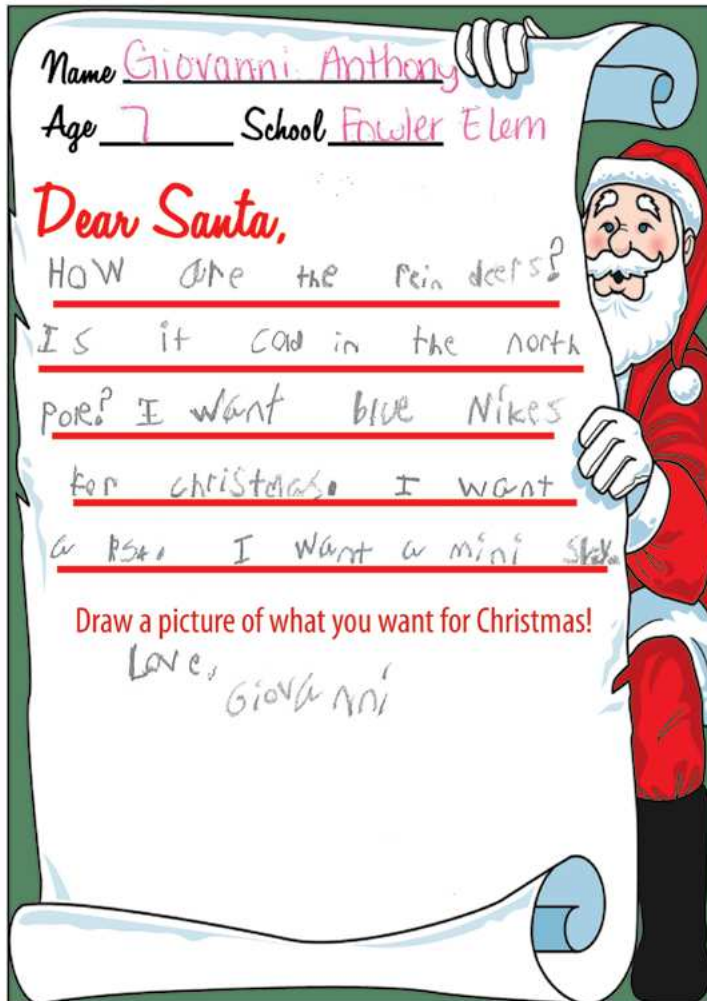 Name Giovanni Anthony
Age 7 School Fowler Elem
Dear Santa,
HOW are the rein deers?
Is it cold in the north
pole? I want blue Nikes
for christmas. I want
a PS4. I want a mini
Draw a picture of what you want for Christmas!
Love,
Giovanni